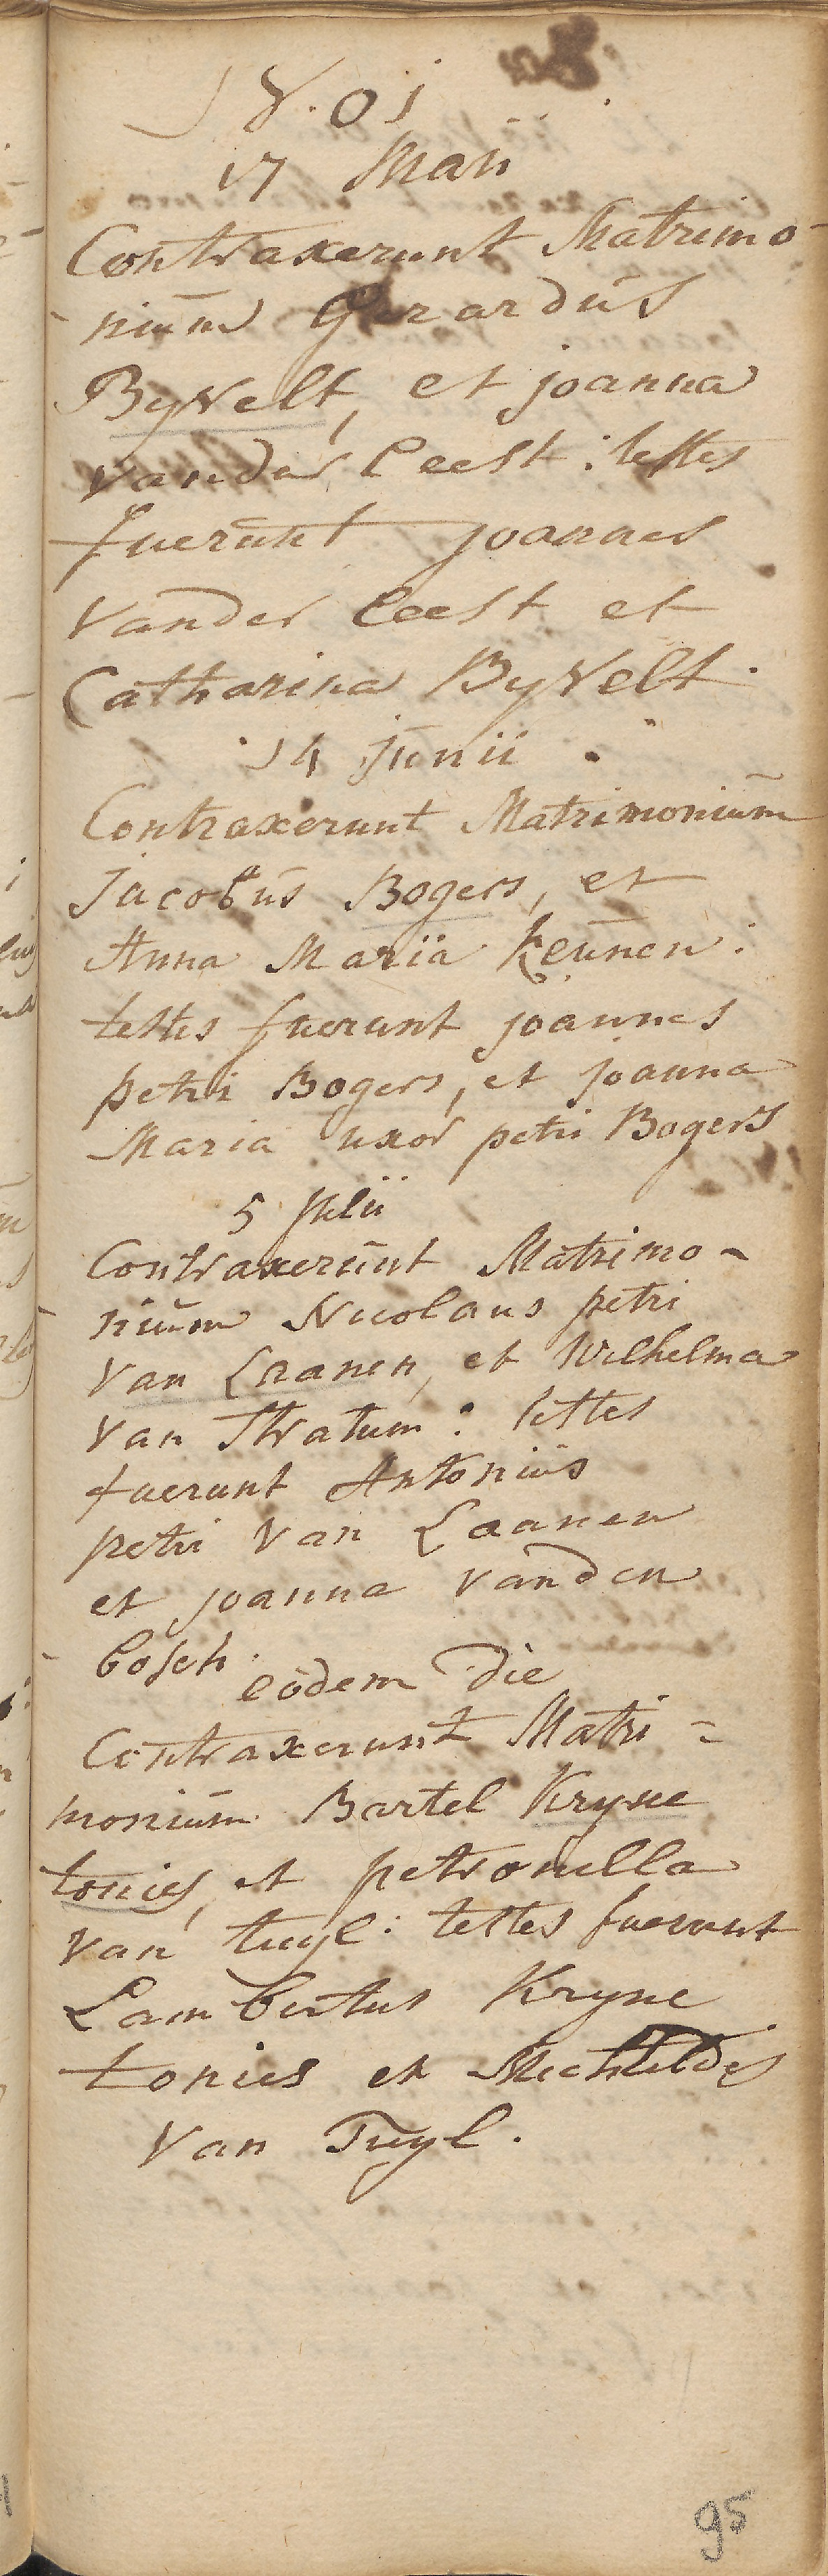 18.01
17 Maii
Contraxerunt Matrimo-
nium Gerardus
Byvelt, et joanna
vander leest: testes
fuerunt joannes
vander leest et
Catharina Byvelt.
14 junii
Contraxerunt Matrimonium
Jacobus Bogers, et
Anna Maria Keunen:
testes fuerunt joannes
petri Bogers, et joanna
Maria uxor petri Bogers
5 Julii
Contraxerunt Matrimo-
nium Nicolaus petri
van Laanen, et Wilhelma
van Stratum: testes
fuerunt Antonius
petri van Laanen
et joanna vanden
bosch.
eodem die
Contraxerunt Matri-
monium Bartel Kryne
tonies, et petronella
van tuyl: testes fuerunt
Lambertus Kryne
tonies et Mechtildis
van Tuyl.
95